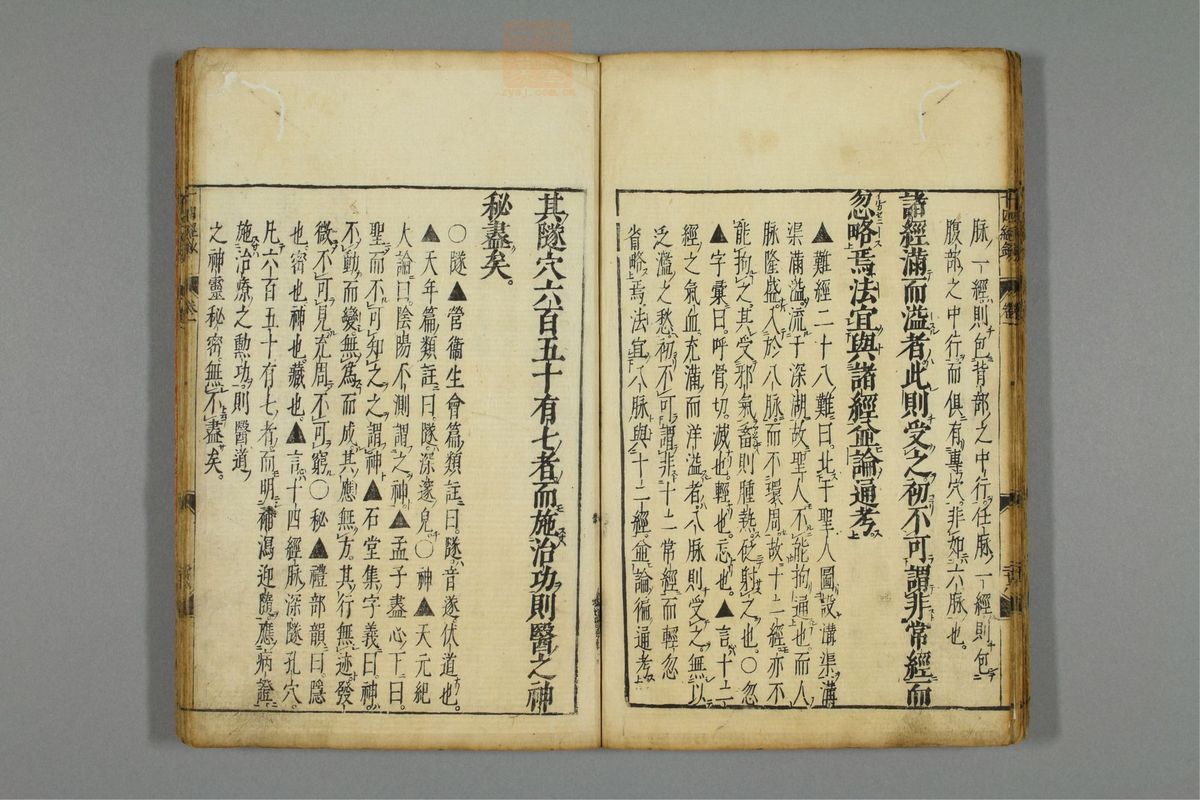 脉一經則包背部之中行任脉一經則包
腹部之中行而俱有專穴非如六脉也。
諸經滿而溢者此則受之初不可謂非常經而
忽略焉法宜與諸經並論通考。
▲難經二十八難曰比于聖人圖設溝渠溝
渠滿溢流于深湖故聖人不能拘通也而人
脉隆盛入於八脉而不環周故十二經亦不
能拘之其受邪氣畜則腫熱砭射之也。○忽
▲字彙曰呼骨切滅也輕也忘也▲言十二
經之氣血充滿而洋溢者八脉則受之無以
泛濫之愁初不可謂非十二常經而輕忽
省略焉法宜八脉與十二經並論徧通考
其隧穴六百五十有七者而施治功則醫之神
秘盡矣。
○隧▲營衞生會篇類註曰隧音遂伏道也。
▲天年篇類註曰隧深邃皃○神▲天元紀
大論曰陰陽不測謂之神▲孟子盡心下曰
聖而不可知之之謂神▲石堂集字義曰神
不動而變無爲而成其應無方其行無迹發
微不可見充周不可窮○秘▲禮部韻曰隱
也密也神也藏也▲言十四經脉深隧孔穴
凡六百五十有七者而明補瀉迎隨應病證
施治療之勲功則醫道
之神靈秘密無不盡矣。